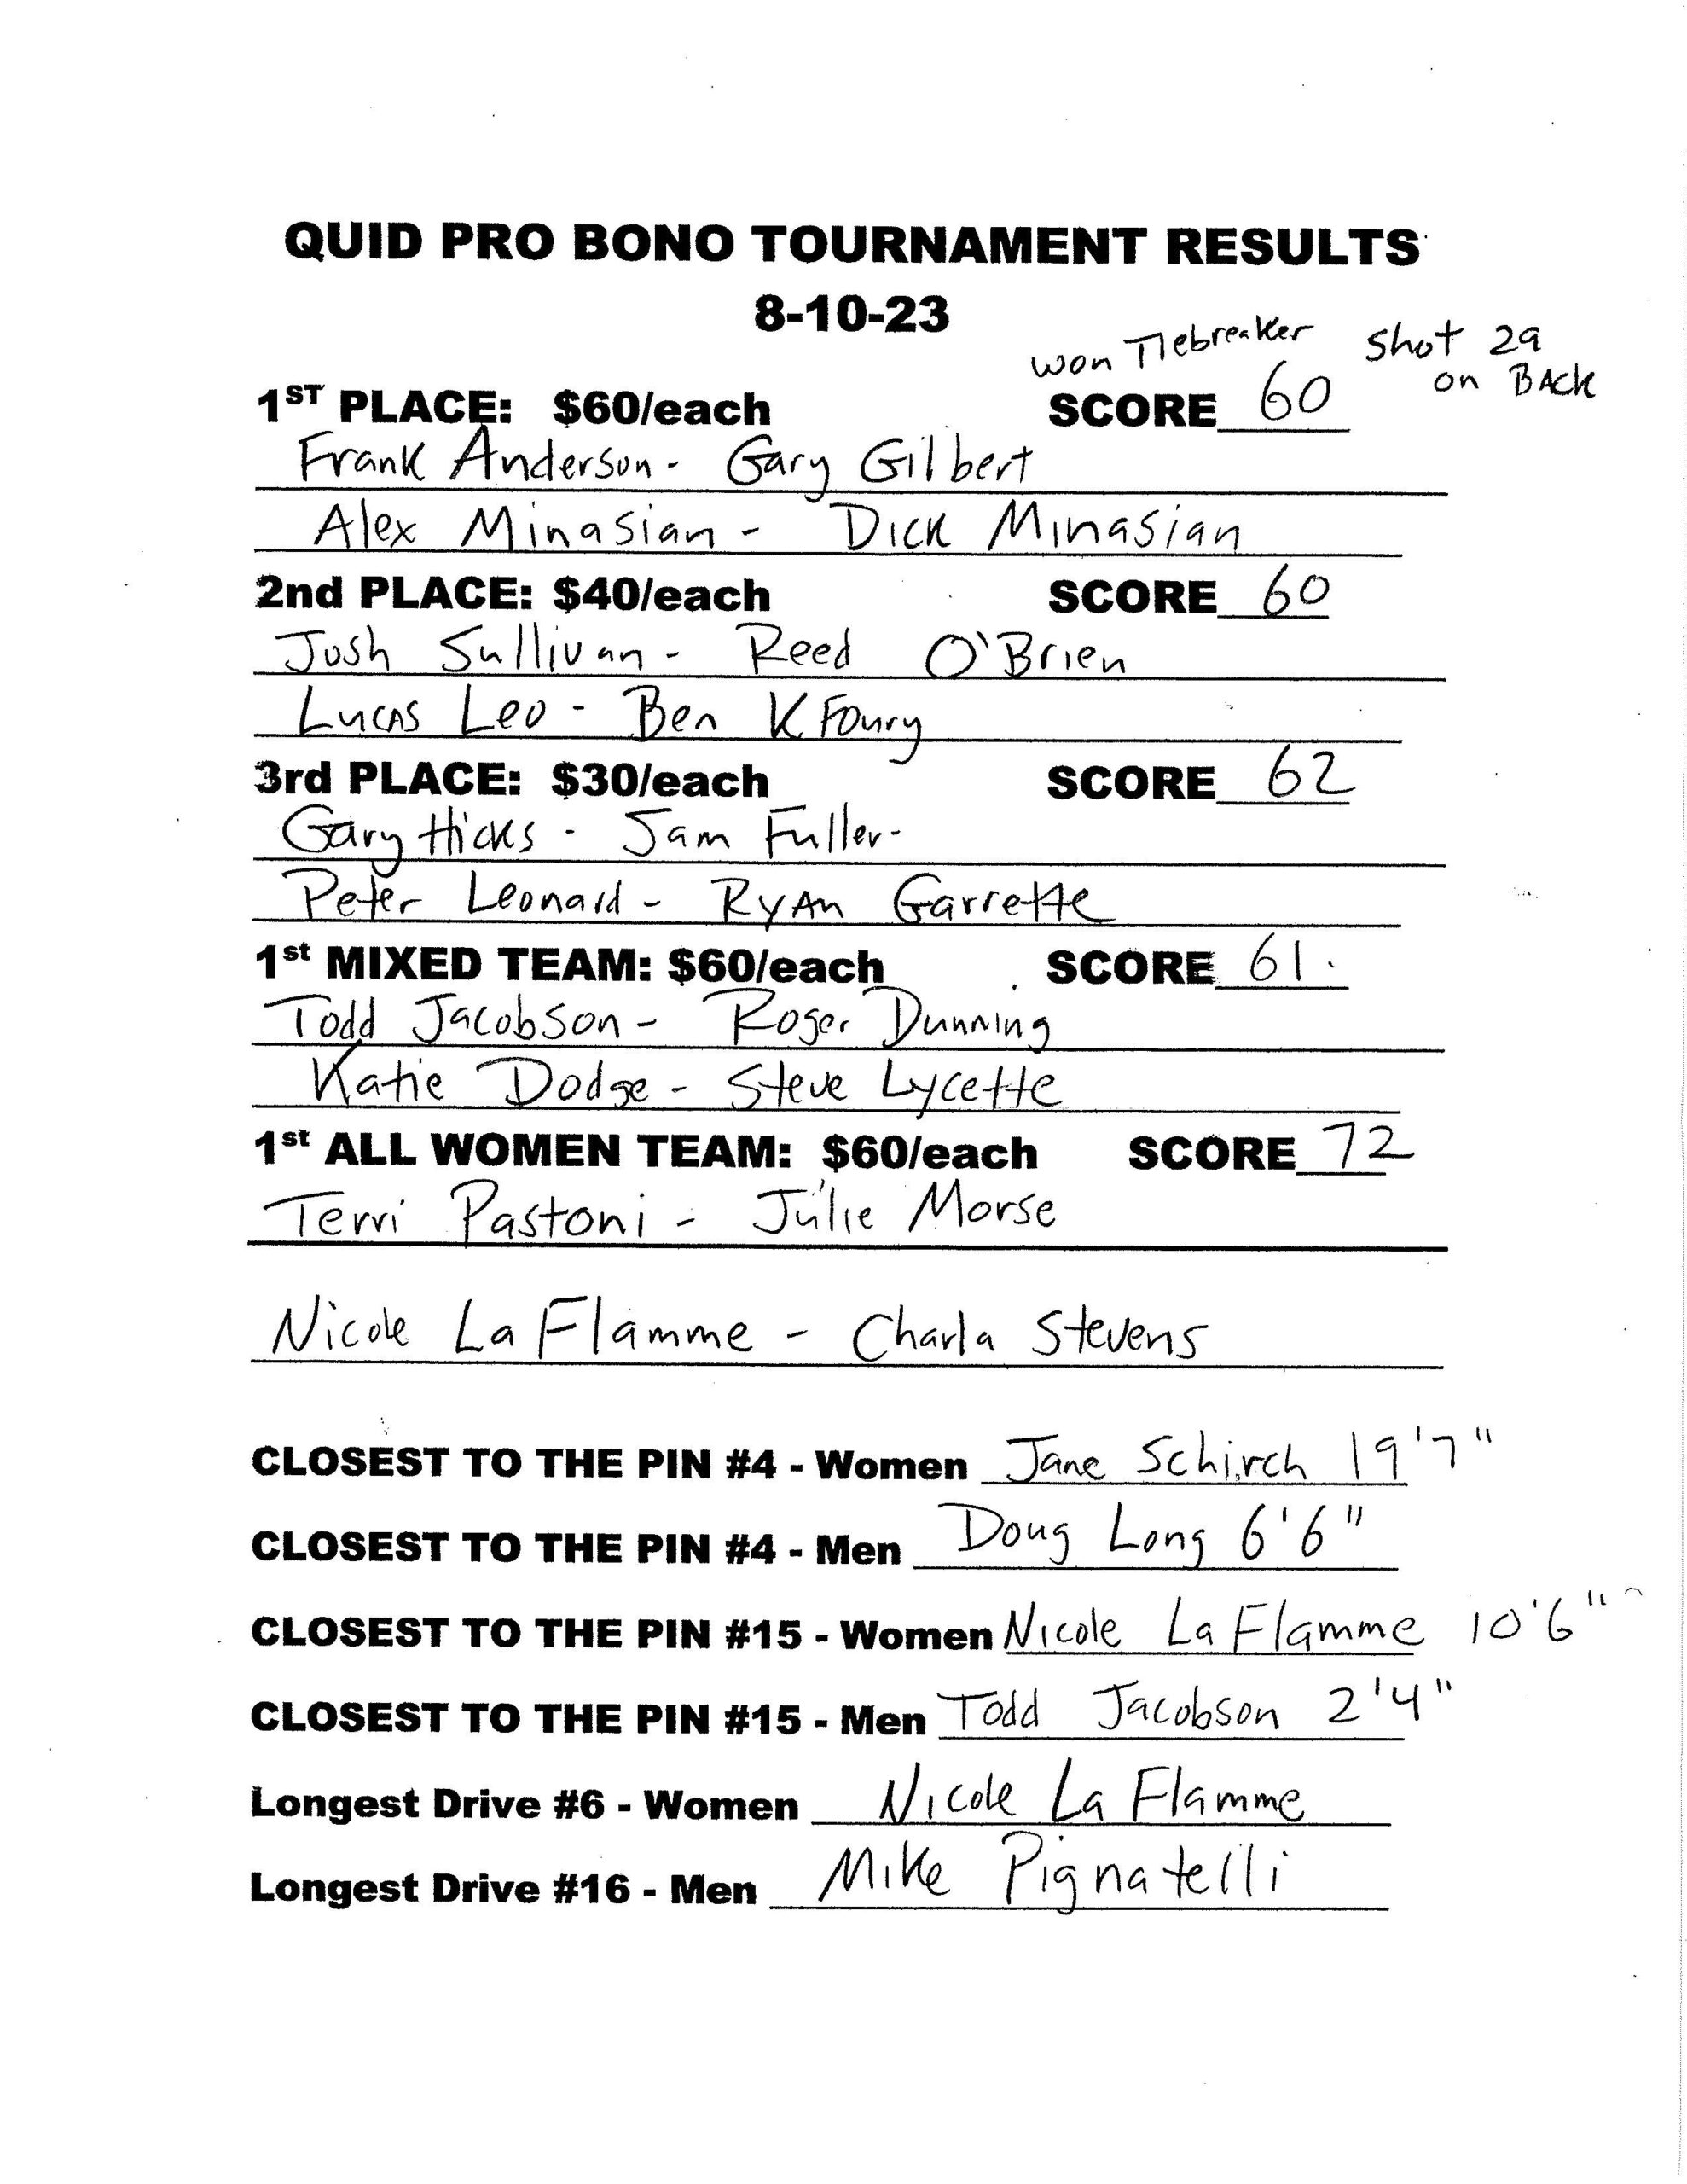 QUID PRO BONO TOURNAMENT RESULTS
8-10-23
won Tiebreaker shot 29
on BAck
1ST PLACE: $60/each SCORE 60
Frank Anderson - Gary Gilbert
Alex Minasian - Dick Minasian
2nd PLACE: $40/each SCORE 60
Josh Sullivan - Reed O'Brien
Lucas Leo - Ben KFoury
3rd PLACE: $30/each SCORE 62
Gary Hicks - Sam Fuller -
Peter Leonard - Ryan Garrette
1st MIXED TEAM: $60/each SCORE 61
Todd Jacobson - Roger Dunning
Katie Dodge - Steve Lycette
1st ALL WOMEN TEAM: $60/each SCORE 72
Terri Pastoni - Julie Morse
Nicole LaFlamme - Charla Stevens
CLOSEST TO THE PIN #4 - Women Jane Schirch 19'7"
CLOSEST TO THE PIN #4 - Men Doug Long 6'6"
CLOSEST TO THE PIN #15 - Women Nicole LaFlamme 10'6"
CLOSEST TO THE PIN #15 - Men Todd Jacobson 2'4"
Longest Drive #6 - Women Nicole La Flamme
Longest Drive #16 - Men Mike Pignatelli